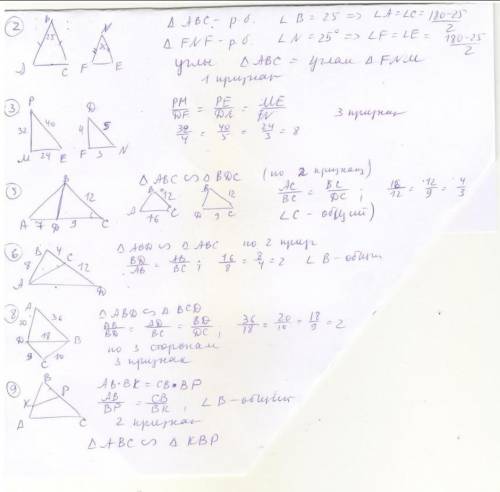 ②
B
25
A C
N
25
F E
Δ ABC – р.б. ∠B = 25 => ∠A=∠C= (180-25)/2
Δ FNF – р.б. ∠N = 25° => ∠F=∠E= (180-25)/2
углы Δ ABC = углам Δ FNM
1 признак
③
P
32 40
M 24 E
D
4 5
F 3 N
PM/DF = PE/DN = ME/FN
32/4 = 40/5 = 24/3 = 8
3 признак
B
12
A 7 D 9 C
Δ ABC ∽ Δ BDC (по 2 признаку)
B 12
A 16 C
B 12
D 9 C
AC/BC = BC/DC; 16/12 = 12/9 = 4/3
∠C – общий)
⑥
B 4 C
8 12
A D
Δ ABD ∽ Δ ABC по 2 призн
BD/AB = AB/BC; 16/8 = 8/4 = 2 ∠B – общий
⑧
A
20 36
D 18 B
9 10
C
Δ ABD ∽ Δ BCD
AB/BD = AD/BC = BD/DC; 36/18 = 20/10 = 18/9 = 2
по 3 сторонам
3 признак
⑨
B
K P
A C
AB·BK = CB·BP
AB/BP = CB/BK, ∠B – общий
2 признак
Δ ABC ∽ Δ KBP